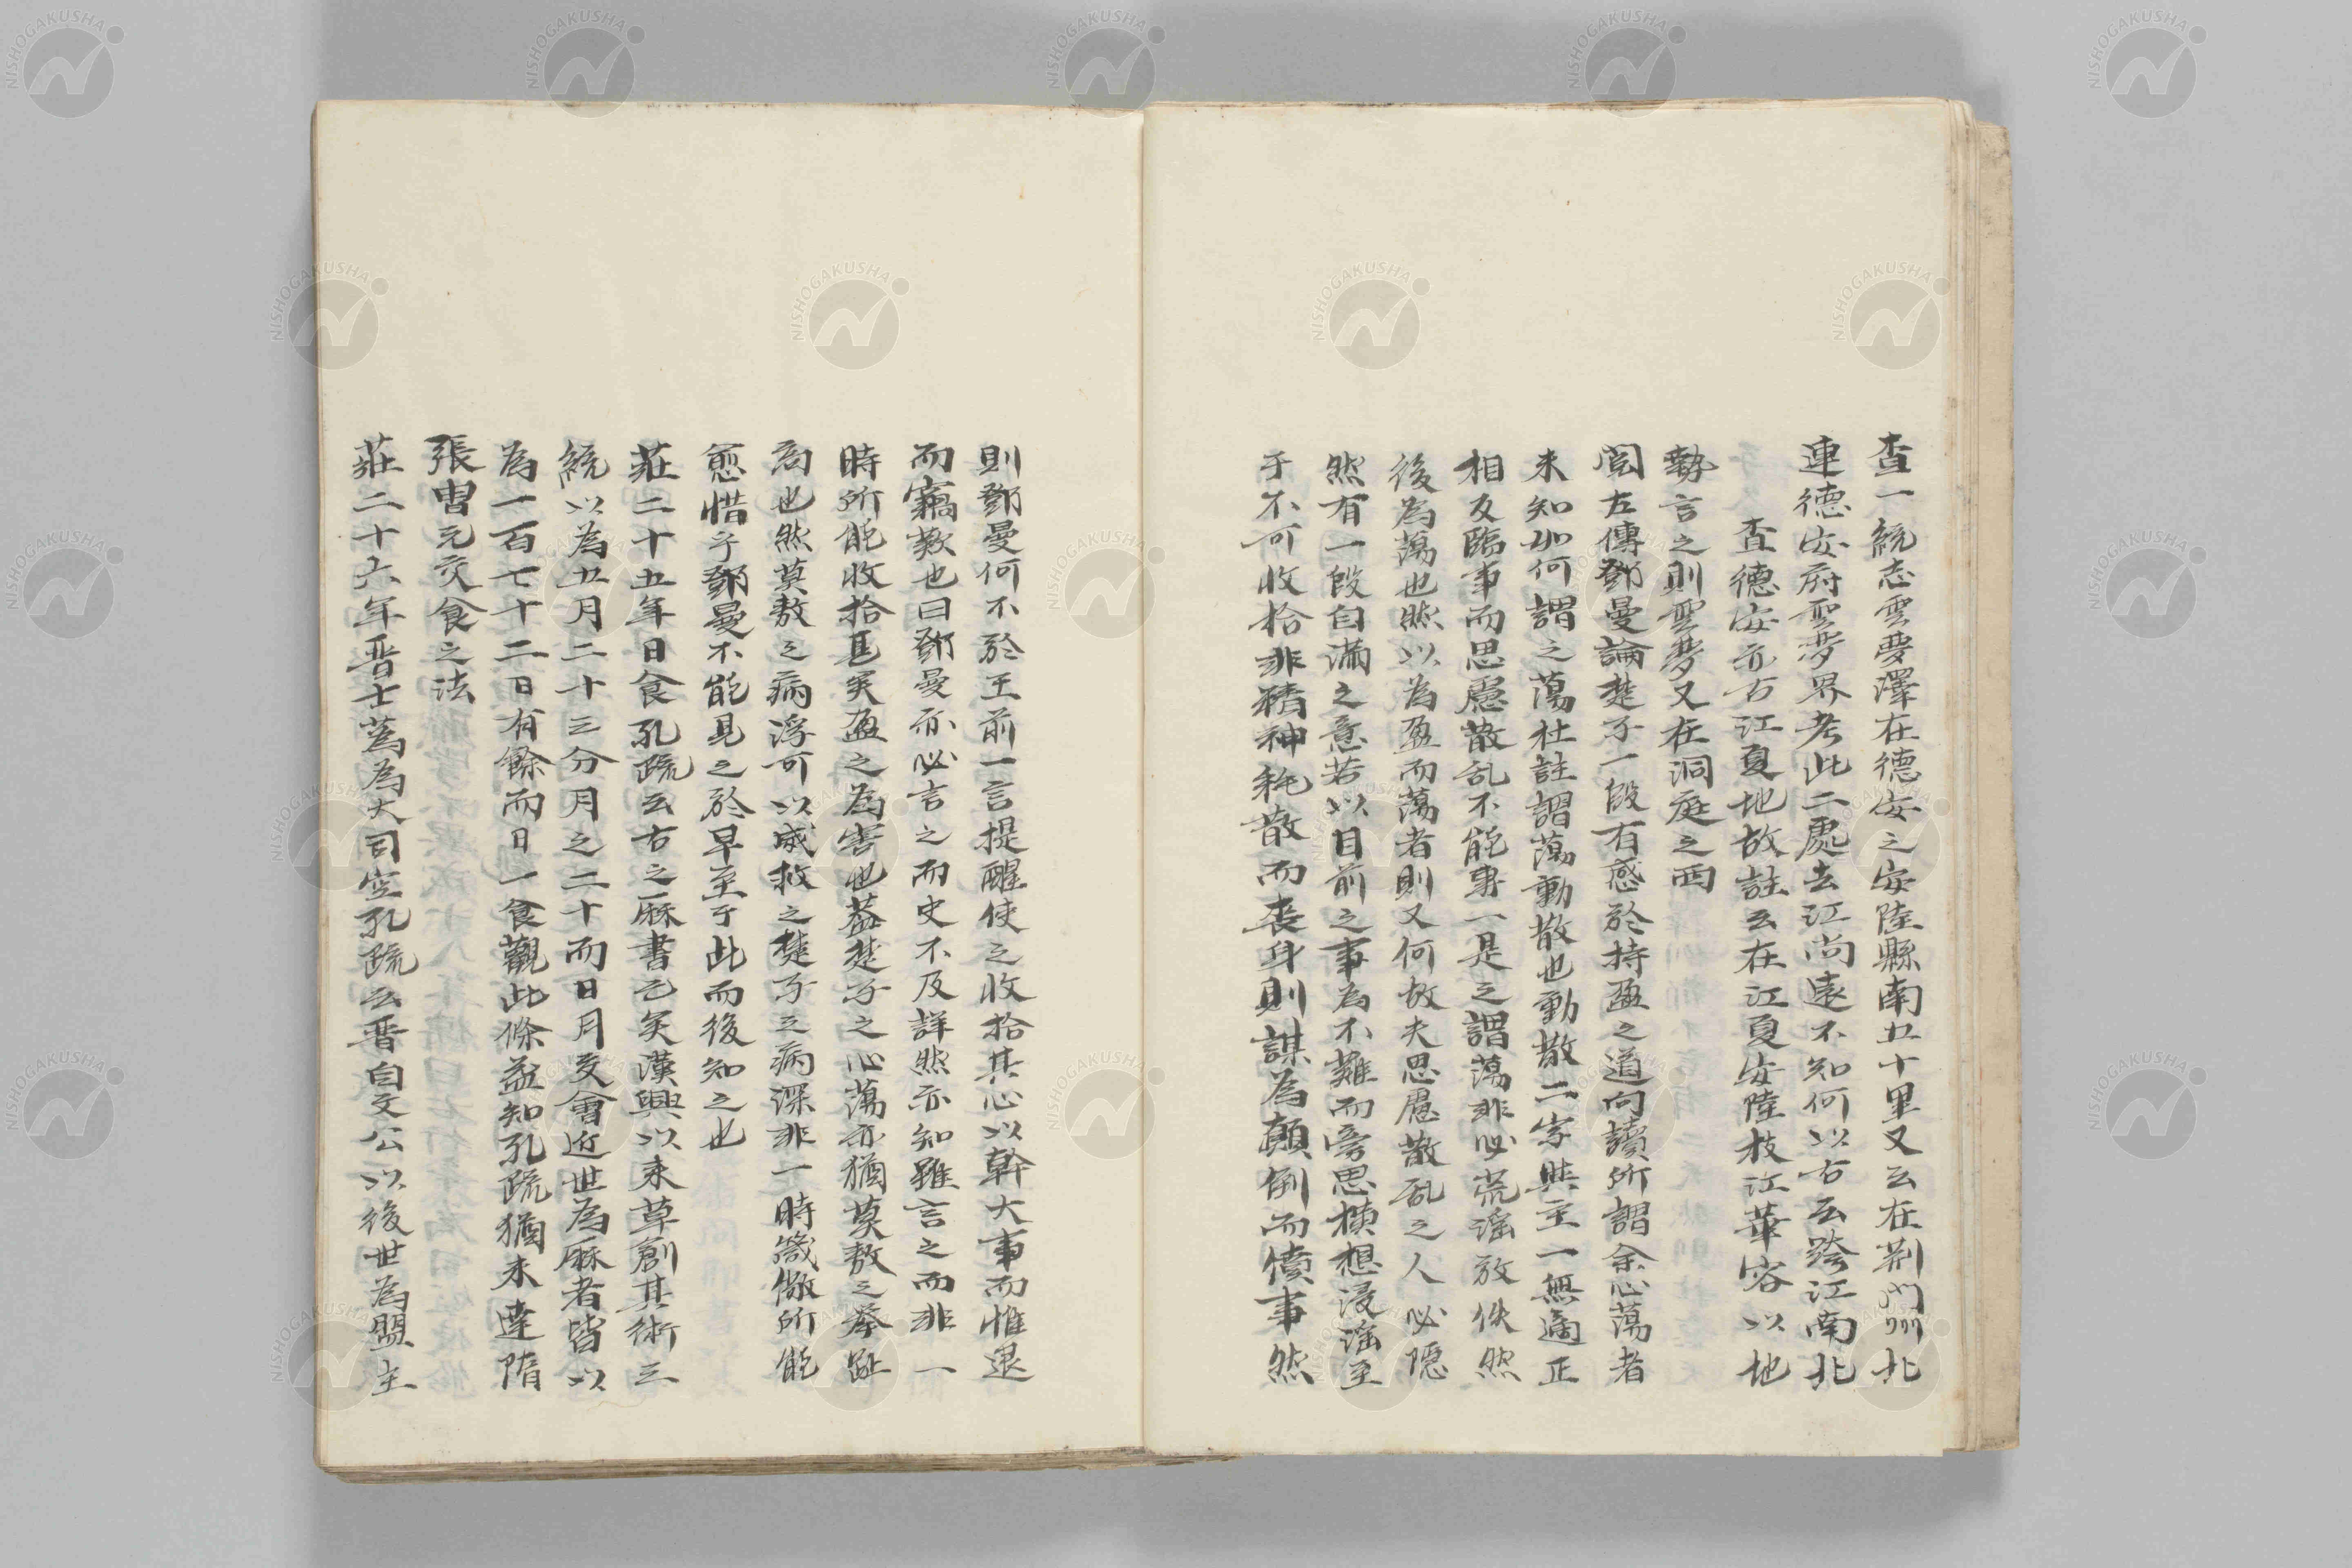 查一統志雲夢澤在德安之安陸縣南五十里又云在荆門州北
連德安府雲夢界考此二處去江尚遠不知何以古云跨江南北
查德安亦古江夏地故註云在江夏安陸枝江華容以地
勢言之則雲夢又在洞庭之西
閲左傳鄧曼論楚子一段有感於持盈之道向讀所謂余心蕩者
未知如何謂之蕩杜註謂蕩動散也動散二字與主一無適正
相反臨事而思慮散乱不能専一是之謂蕩非必荒滛放佚然
後為蕩也然以為盈而蕩者則又何故夫思慮散亂之人必隱
然有一段自滿之意若以目前之事為不難而旁思橫想浸滛至
于不可收拾非精神耗散而喪身則謀為顛倒而僨事然
則鄧曼何不於王前一言提醒使之收拾其心以幹大事而惟退
而竊歎也曰鄧曼亦必言之而史不及詳然亦知雖言之而非一
時所能收拾甚矣盈之為害也葢楚子之心蕩亦猶莫敖之舉趾
高也然莫敖之病浮可以威救之楚子之病深非一時箴儆所能
愈惜乎鄧曼不能見之於早至于此而後知之也
莊二十五年日食孔疏云古之厤書亡矣漢興以来草創其術三
統以為五月二十三分月之二十而日月交會近世為厤者皆以
為一百七十二日有餘而日一食觀此條益知孔疏猶未達隋
張冑元交食之法
莊二十六年晋士蒍為大司空孔疏云晋自文公以後世為盟主
NISHOGAKUSHA